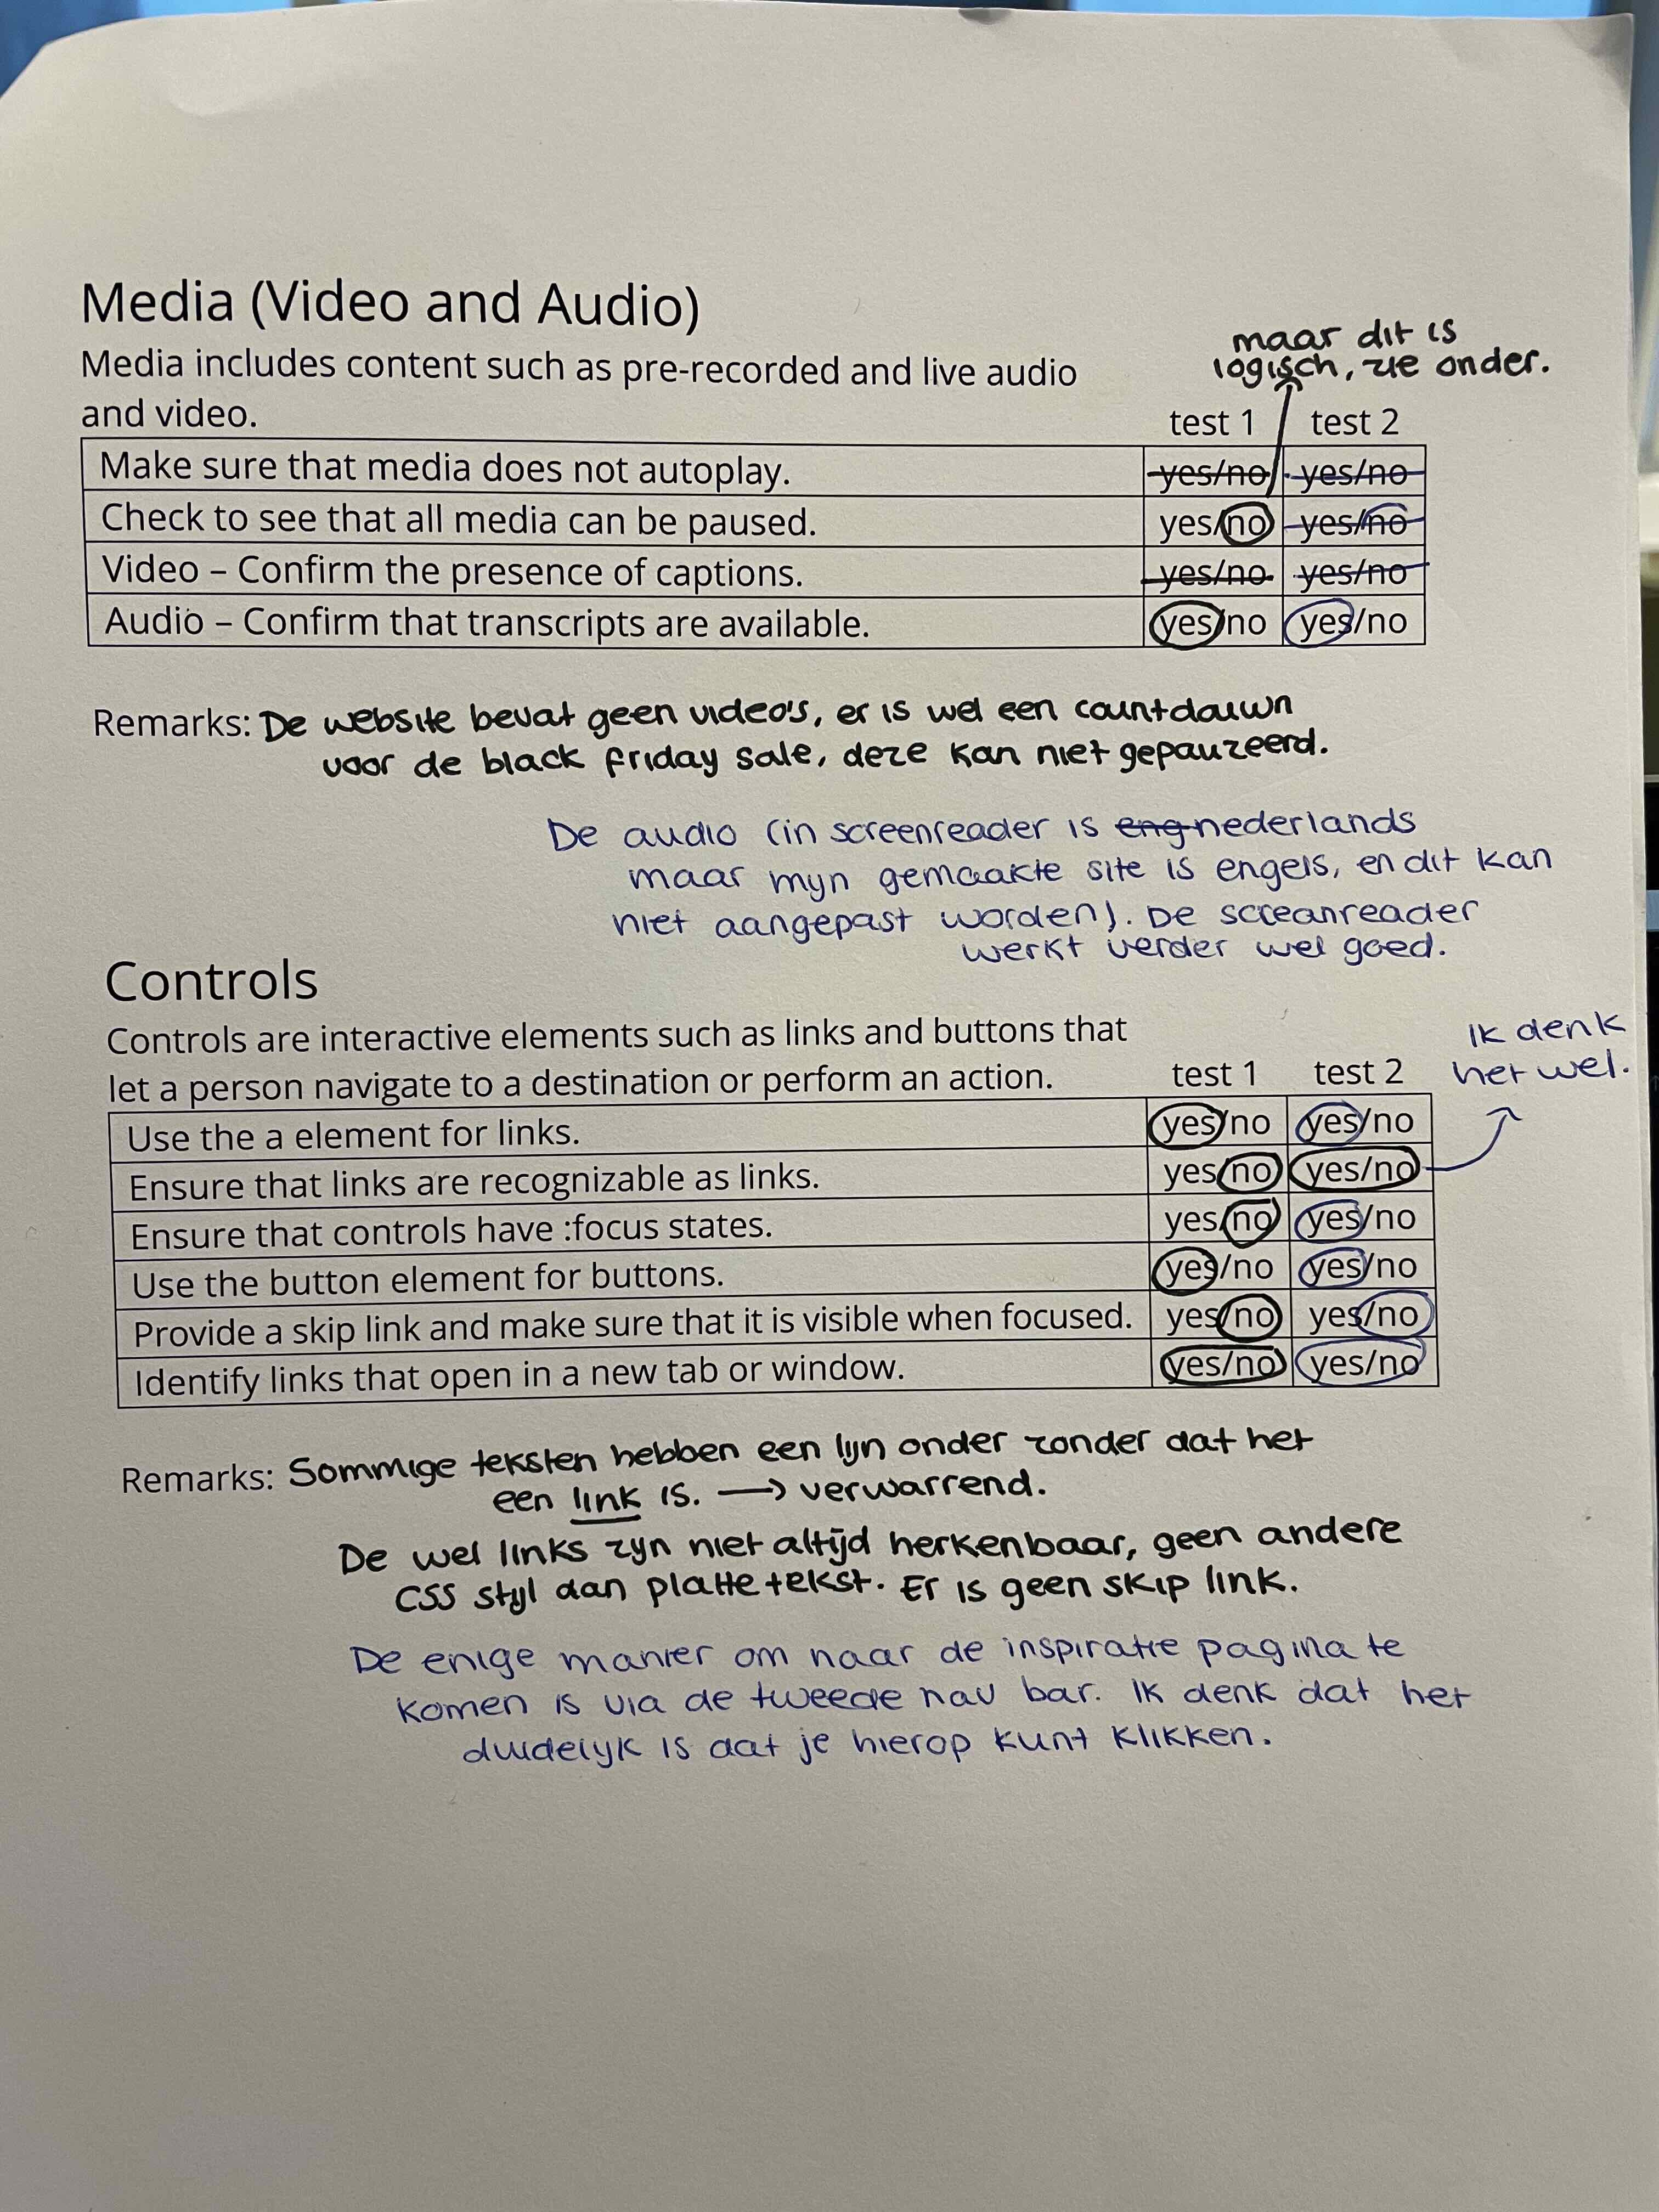 Media (Video and Audio)
maar dit is
logisch, zie onder.
Media includes content such as pre-recorded and live audio
and video.
test 1 test 2
Make sure that media does not autoplay. yes/no yes/no
Check to see that all media can be paused. yes/no yes/no
Video – Confirm the presence of captions. yes/no yes/no
Audio – Confirm that transcripts are available. yes/no yes/no
Remarks: De website bevat geen video's, er is wel een countdouwn
voor de black friday sale, deze kan niet gepauzeerd.
De audio (in screenreader is eng nederlands
maar mijn gemaakte site is engels, en dit kan
niet aangepast worden). De screanreader
werkt verder wel goed.
Controls
Controls are interactive elements such as links and buttons that
let a person navigate to a destination or perform an action.
test 1 test 2
Ik denk
het wel.
Use the a element for links. yes/no yes/no
Ensure that links are recognizable as links. yes/no yes/no
Ensure that controls have :focus states. yes/no yes/no
Use the button element for buttons. yes/no yes/no
Provide a skip link and make sure that it is visible when focused. yes/no yes/no
Identify links that open in a new tab or window. yes/no yes/no
Remarks: Sommige teksten hebben een lijn onder zonder dat het
een link is. → verwarrend.
De wel links zijn niet altijd herkenbaar, geen andere
CSS stijl dan platte tekst. Er is geen skip link.
De enige manier om naar de inspiratie pagina te
komen is via de tweede nav bar. Ik denk dat het
duidelijk is dat je hierop kunt klikken.